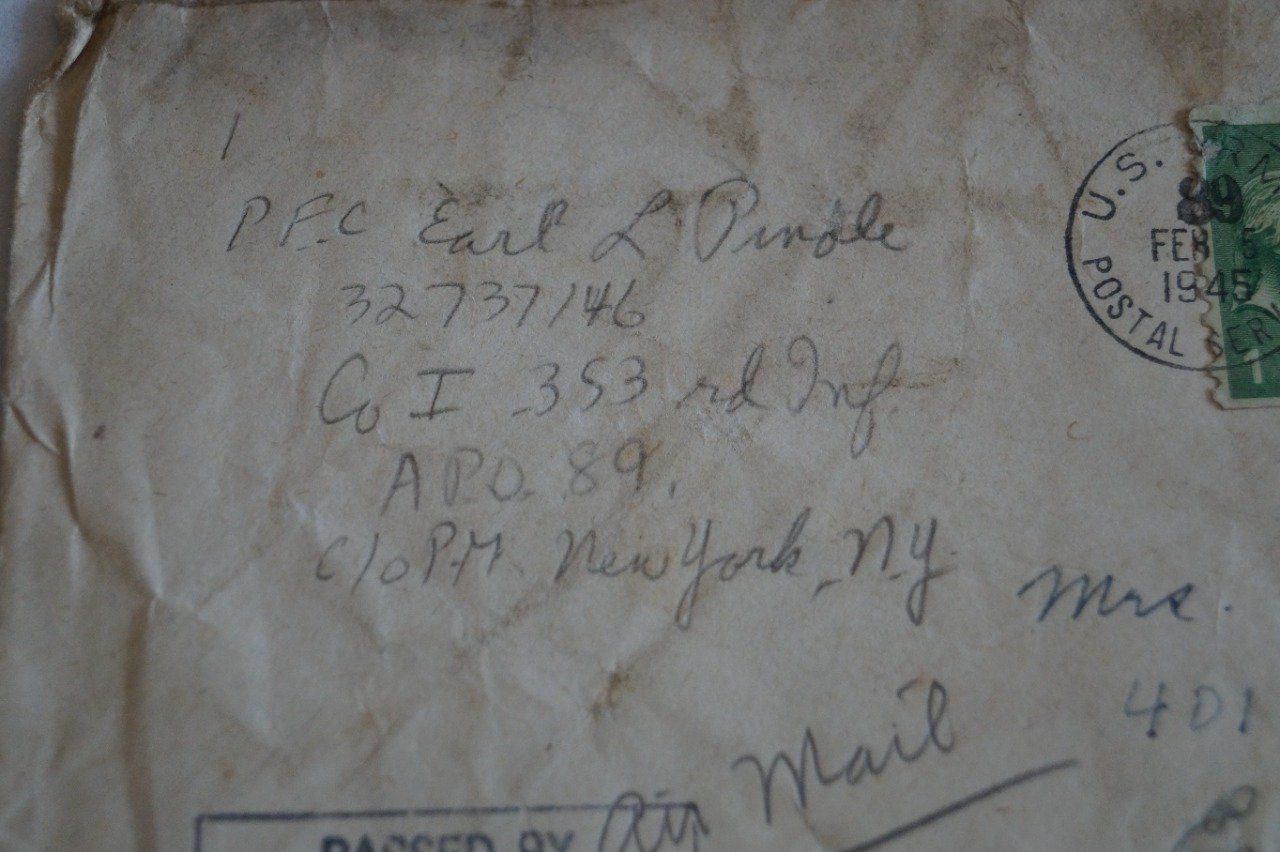 1
PFC Earl L Pindle
32737146
Co I 353rd Inf
A.P.O. 89.
c/o P.M. New York, N.Y.
U.S.
89
FEB 5
1945
POSTAL SER
1
Mrs.
401
Air Mail
PASSED BY